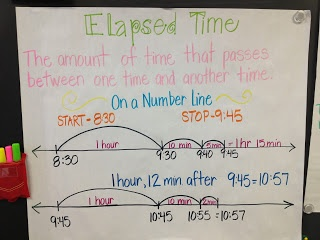 Elapsed Time
The amount of time that passes
between one time and another time.
On a Number Line
START-8:30 STOP-9:45
1 hour 10 min 5 min = 1 hr 15 min
8:30 9:30 9:40 9:45
1 hour, 12 min after 9:45 = 10:57
1 hour 10 min 2 min
9:45 10:45 10:55 = 10:57